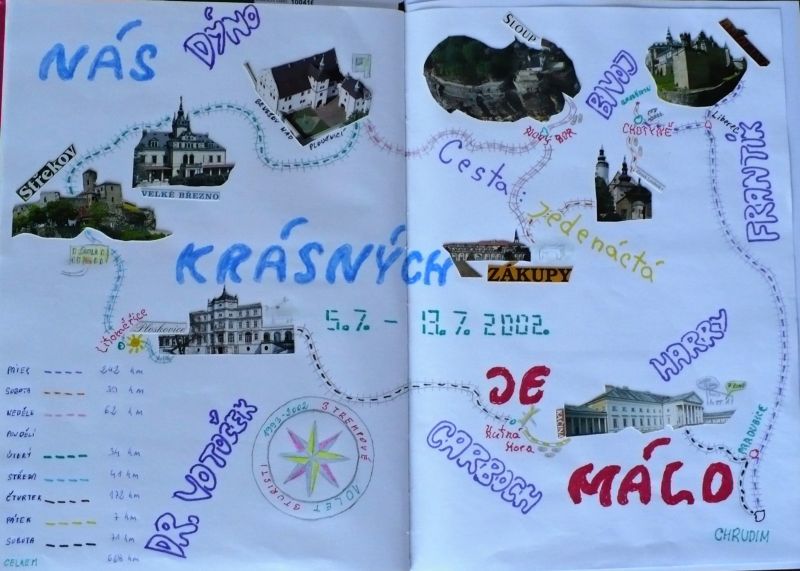 NÁS
DÝNO
BENEŠOV NAD
PLOUČNICÍ
Střekov
VELKÉ BŘEZNO
KRÁSNÝCH
Litoměřice
Ploskovice
PÁTEK 242 km
SOBOTA 39 km
NEDĚLE 62 km
PONDĚLÍ
ÚTERÝ 34 km
STŘEDA 41 km
ČTVRTEK 172 km
PÁTEK 7 km
SOBOTA 71 km
CELKEM 668 km
DR. VOTOČEK
1993-2002
10 LET
SLOUP
BIVOJ
NOVÝ BOR
CHOTYNĚ
Liberec
FRANTÍK
Cesta:
jedenáctá
ZÁKUPY
5.7. - 13.7. 2002.
JE
HARRY
KAČINA
Kutná
Hora
CARBOCH
MÁLO
PARDUBICE
CHRUDIM